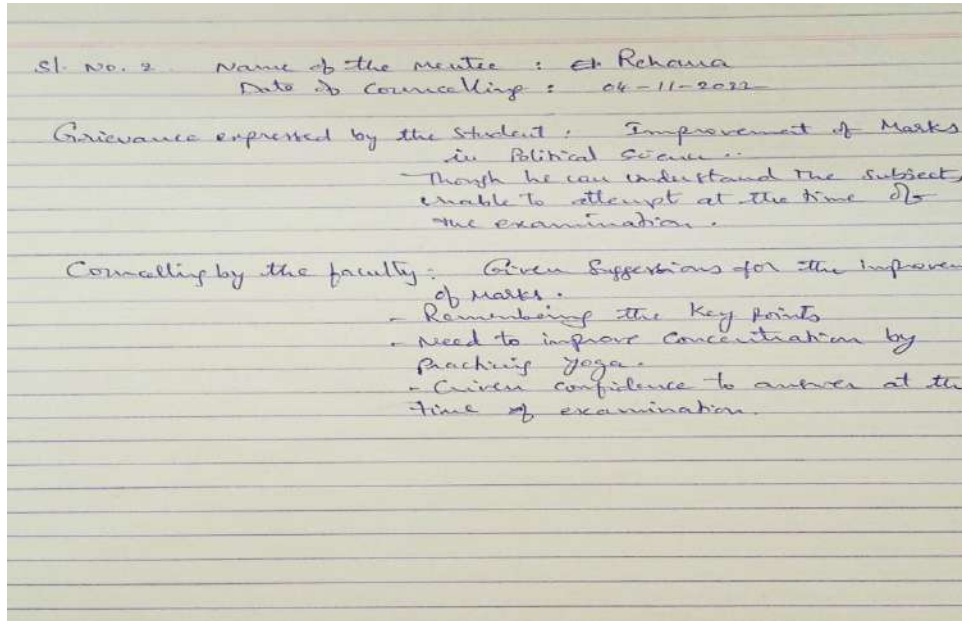 Sl. No. 2. Name of the mentee : Ch. Rehana
Date of Councelling : 04-11-2022
Grievance expressed by the student : Improvement of Marks
in Political Science..
- Though he can understand the subject,
unable to attempt at the time of
the examination.
Councelling by the faculty : Given Suggestions for the improvem
of Marks.
- Remembeing the Key points
- Need to improve concentration by
practicing yoga.
- Given confidence to answer at th
time of examination.